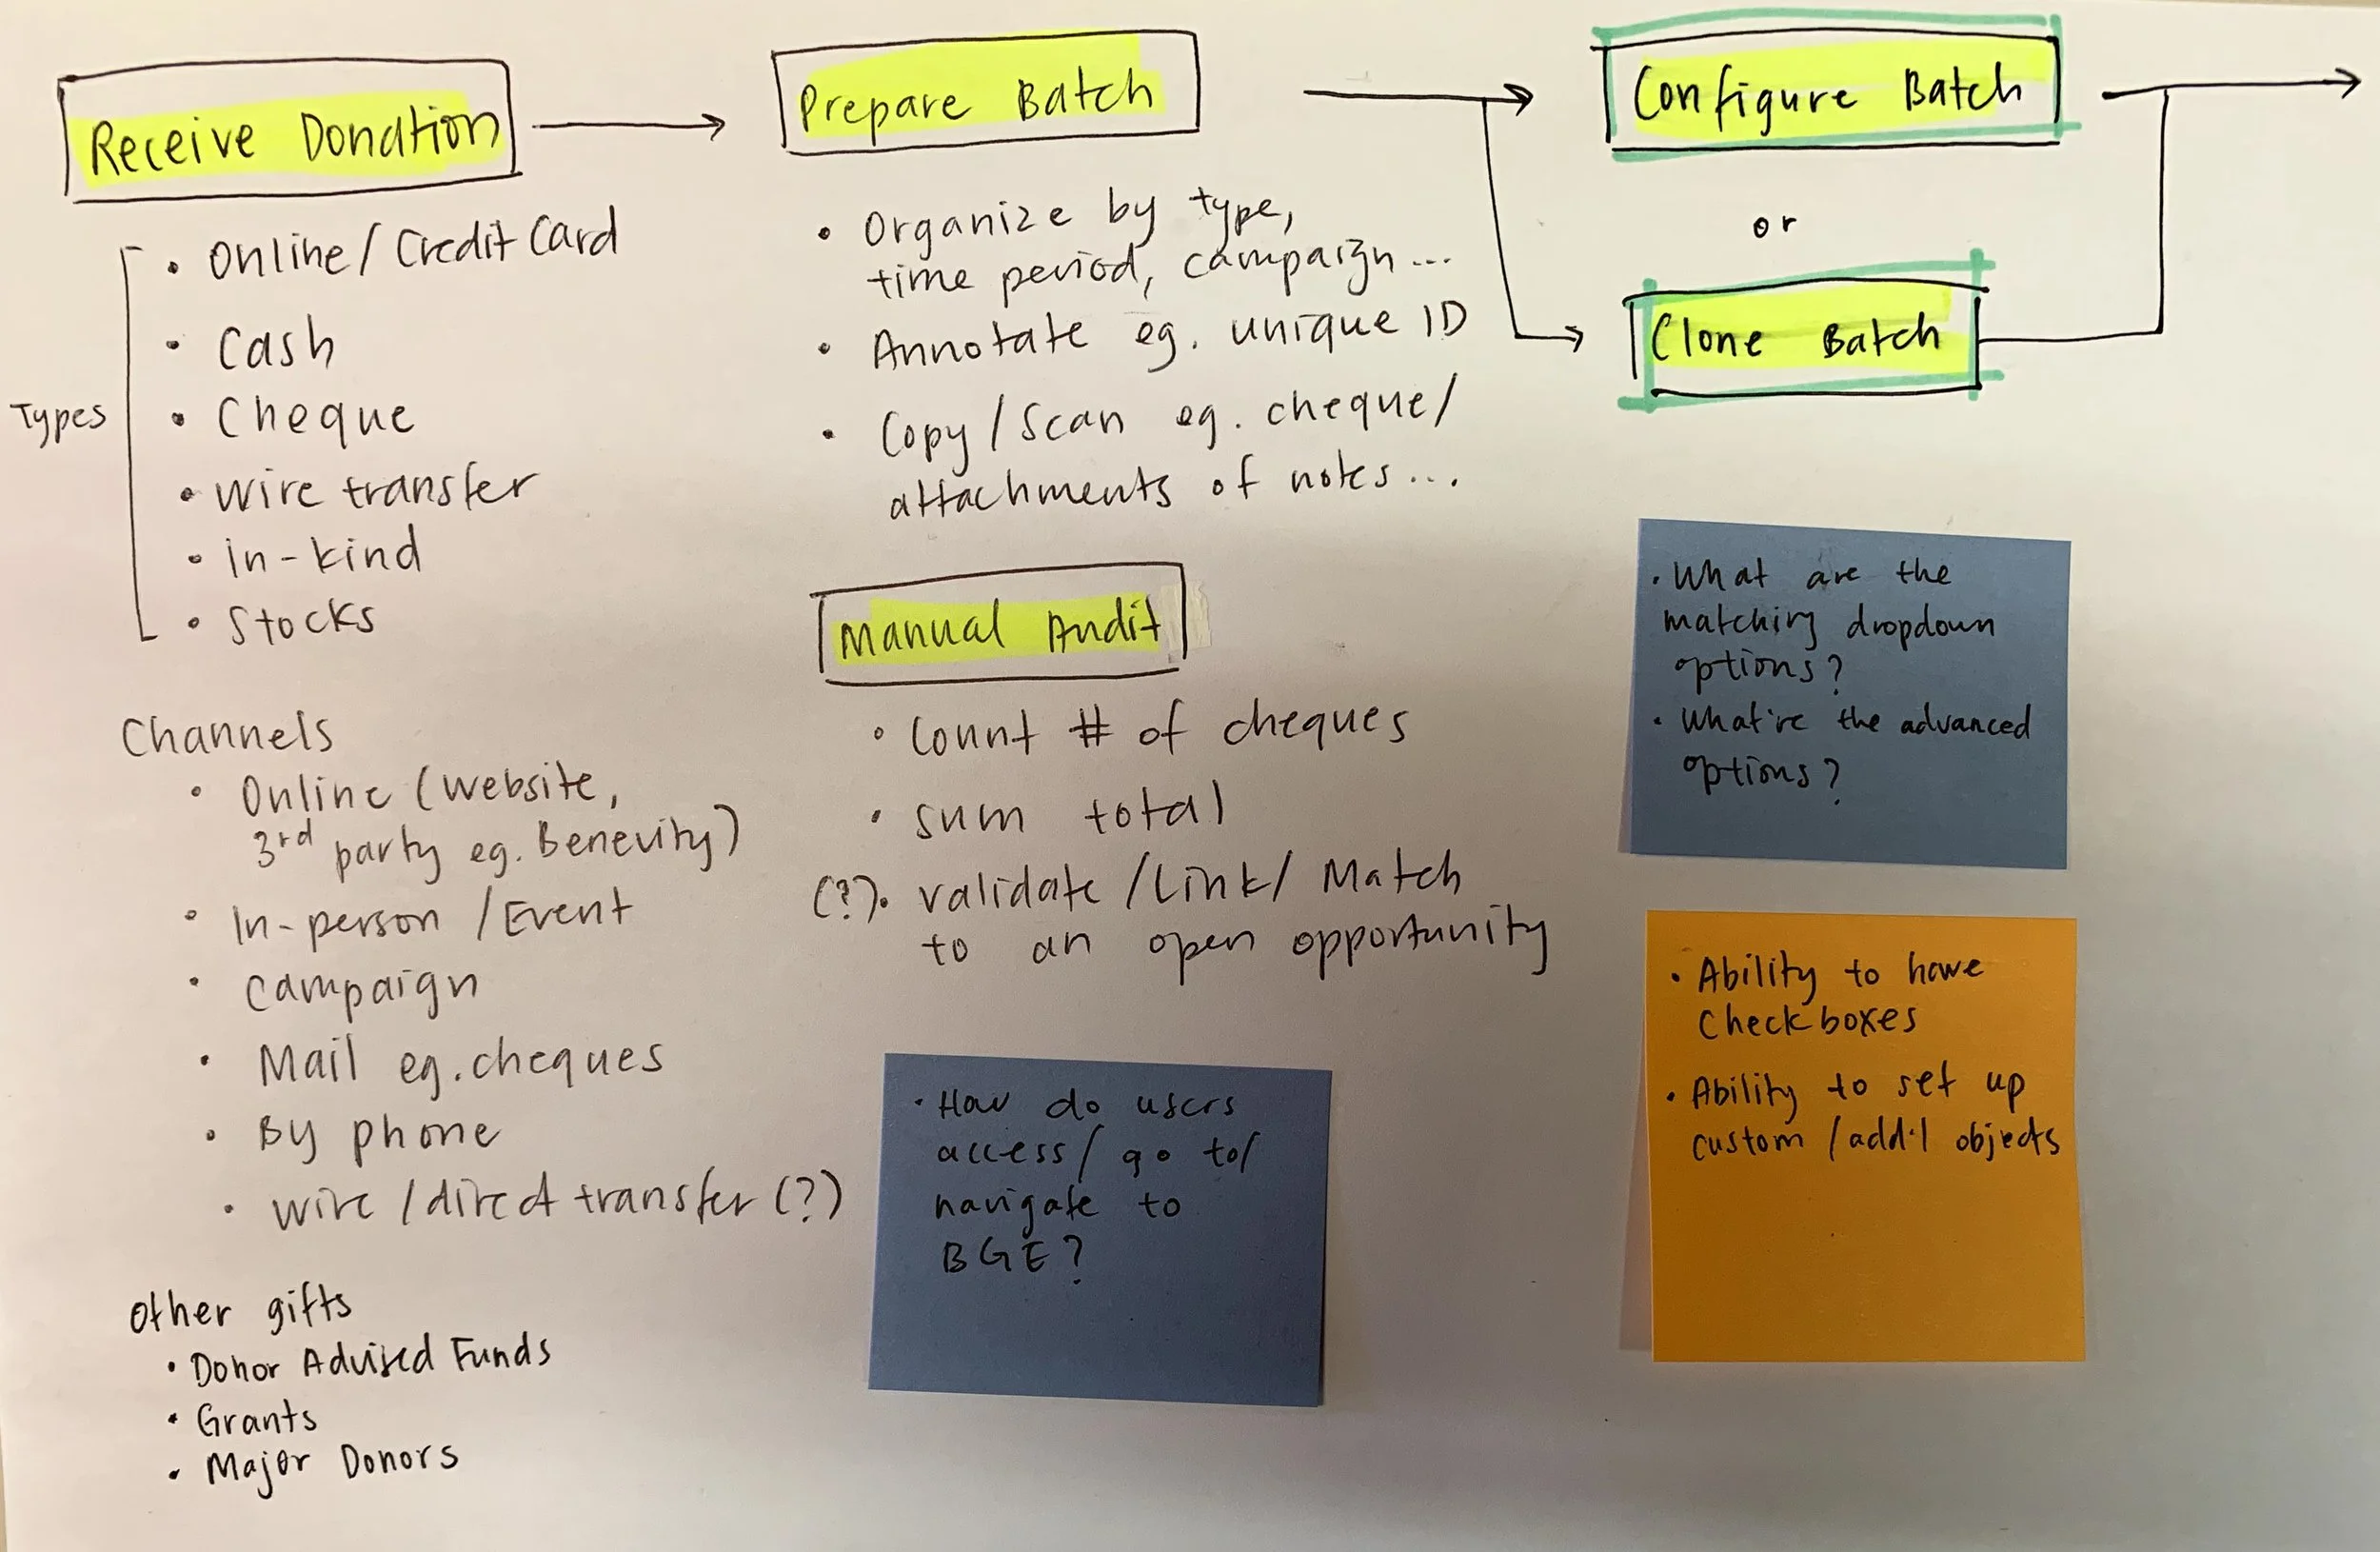 Receive Donation
Types
• Online / Credit Card
• Cash
• Cheque
• wire transfer
• in-kind
• Stocks
Channels
• Online (website,
3rd party eg. Benevity)
• In-person / Event
• Campaign
• Mail eg. cheques
• By phone
• wire / direct transfer (?)
Other gifts
• Donor Advised Funds
• Grants
• Major Donors
Prepare Batch
• Organize by type,
time period, campaign...
• Annotate eg. unique ID
• Copy / Scan eg. cheque /
attachments of notes...
Manual Audit
• Count # of cheques
• sum total
(?). validate / Link / Match
to an open opportunity
• How do users
access / go to /
navigate to
BGE?
Configure Batch
or
Clone Batch
• What are the
matching dropdown
options?
• What're the advanced
options?
• Ability to have
Checkboxes
• Ability to set up
custom / add'l objects